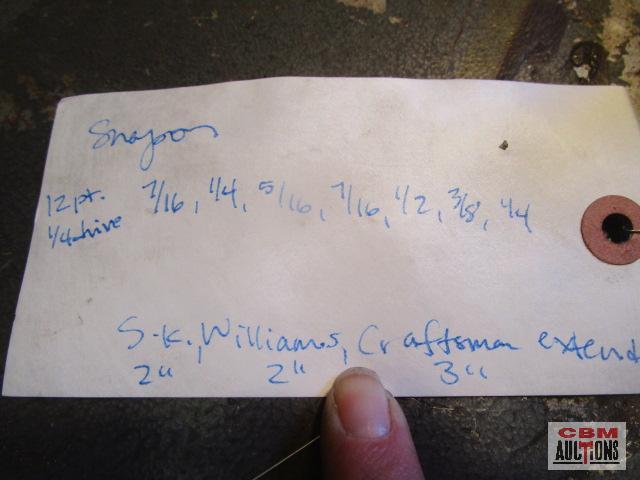 Snapon
12pt. 7/16, 1/4, 5/16, 7/16, 1/2, 3/8, 1/4
1/4 drive
S.K., Williams, Craftsman extend
2" 2" 3"
CBM
AUCTIONS